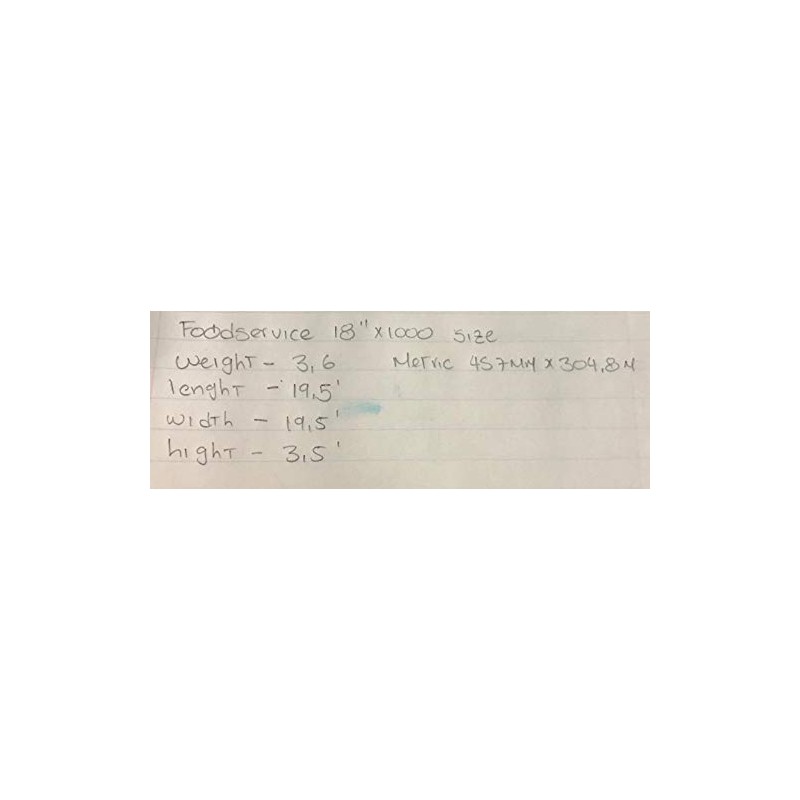 Foodservice 18" x 1000 size
weight - 3,6 Metric 457MM x 304,8M
lenght - 19,5'
width - 19,5'
hight - 3,5'